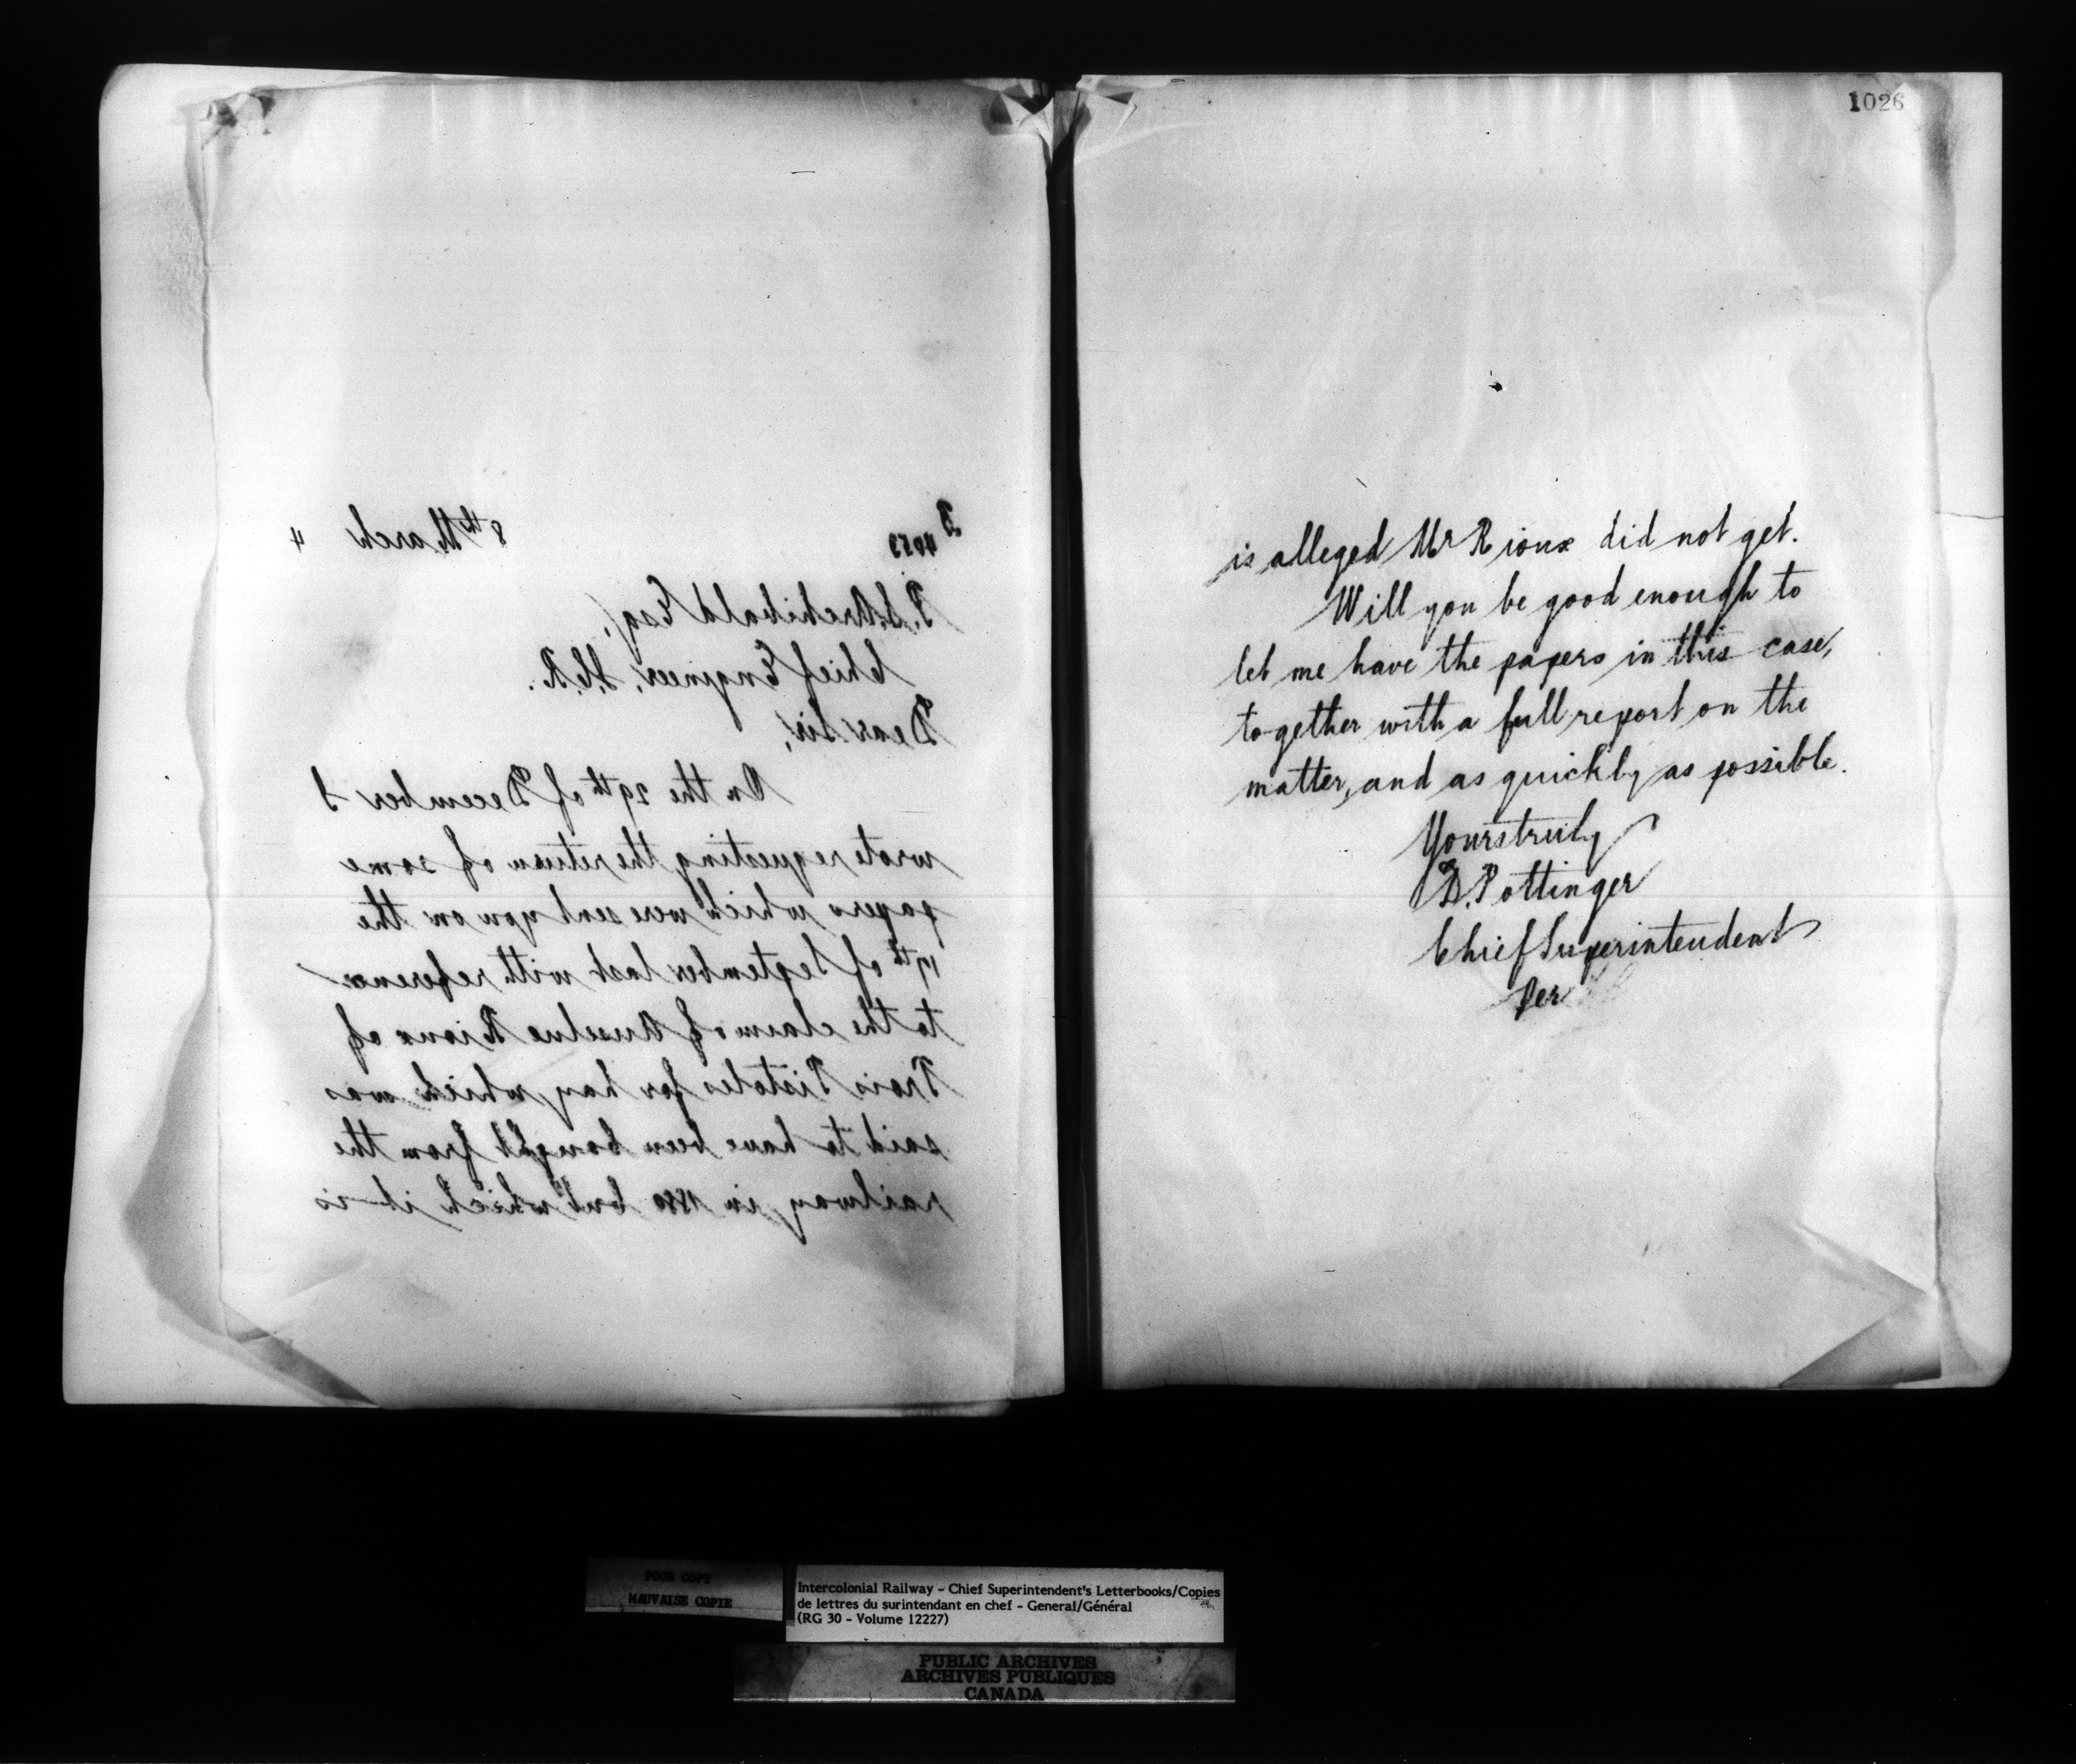 D
4023
8th March 4
P.S. Archibald Esq,
Chief Engineer, I.C.R.
Dear Sir,
On the 29th of December I
wrote requesting the return of some
papers which were sent you on the
17th of September last with reference
to the claim of Anselme Rioux of
Trois Pistoles for hay which was
said to have been bought from the
railway in 1880 but which it is
1026
is alleged Mr Rioux did not get.
Will you be good enough to
let me have the papers in this case,
together with a full report on the
matter, and as quickly as possible.
Yours truly
D. Pottinger
Chief Superintendent
Per
POOR COPY
MAUVAISE COPIE
Intercolonial Railway - Chief Superintendent's Letterbooks/Copies
de lettres du surintendant en chef - General/Général
(RG 30 - Volume 12227)
PUBLIC ARCHIVES
ARCHIVES PUBLIQUES
CANADA